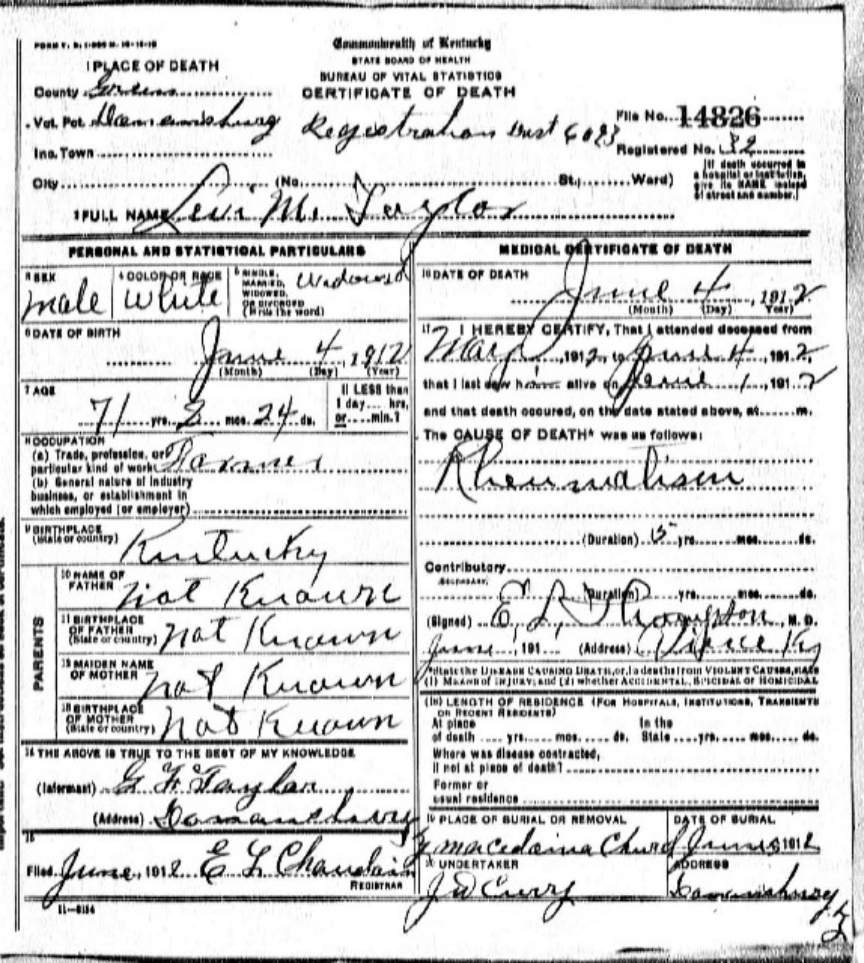 FORM V. S. 1-
Commonwealth of Kentucky
STATE BOARD OF HEALTH
BUREAU OF VITAL STATISTICS
CERTIFICATE OF DEATH
1 PLACE OF DEATH
County Green
Vot. Pct.
Registration Dist 6023
File No. 14826
Inc. Town
Registered No. 32
City (No. St., Ward)
[If death occurred in a hospital or institution, give its NAME instead of street and number.]
2 FULL NAME Levi M. Taylor
PERSONAL AND STATISTICAL PARTICULARS
3 SEX
male
4 COLOR OR RACE
White
5 SINGLE, MARRIED, WIDOWED, OR DIVORCED (Write the word)
Widowed
6 DATE OF BIRTH
June 4, 1912
(Month) (Day) (Year)
7 AGE
71 yrs. 2 mos. 24 ds.
If LESS than 1 day.... hrs. or.... min.?
8 OCCUPATION
(a) Trade, profession, or particular kind of work Farmer
(b) General nature of industry business, or establishment in which employed (or employer)
9 BIRTHPLACE (State or country)
Kentucky
PARENTS
10 NAME OF FATHER
not Known
11 BIRTHPLACE OF FATHER (State or country)
not Known
12 MAIDEN NAME OF MOTHER
not Known
13 BIRTHPLACE OF MOTHER (State or country)
not Known
14 THE ABOVE IS TRUE TO THE BEST OF MY KNOWLEDGE
(Informant) G F Taylor
(Address)
15
Filed June, 1912 E L Chaudoin
REGISTRAR
11-6184
MEDICAL CERTIFICATE OF DEATH
16 DATE OF DEATH
June 4, 1912
(Month) (Day) (Year)
17 I HEREBY CERTIFY, That I attended deceased from
May, 1912, to June 4, 1912,
that I last saw him alive on June 1, 1912
and that death occured, on the date stated above, at m.
The CAUSE OF DEATH* was as follows:
Rheumatism
(Duration) 15 yrs. mos. ds.
Contributory
SECONDARY
(Duration) yrs. mos. ds.
(Signed) E. L. Thompson, M. D.
June, 191 (Address) Pierce Ky
*State the DISEASE CAUSING DEATH, or, in deaths from VIOLENT CAUSES, state
(1) MEANS OF INJURY; and (2) whether ACCIDENTAL, SUICIDAL or HOMICIDAL
18 LENGTH OF RESIDENCE (FOR HOSPITALS, INSTITUTIONS, TRANSIENTS OR RECENT RESIDENTS)
At place of death yrs. mos. ds. In the State yrs. mos. ds.
Where was disease contracted,
if not at place of death?
Former or
usual residence
19 PLACE OF BURIAL OR REMOVAL
DATE OF BURIAL
June 1912
20 UNDERTAKER
J W Curry
ADDRESS